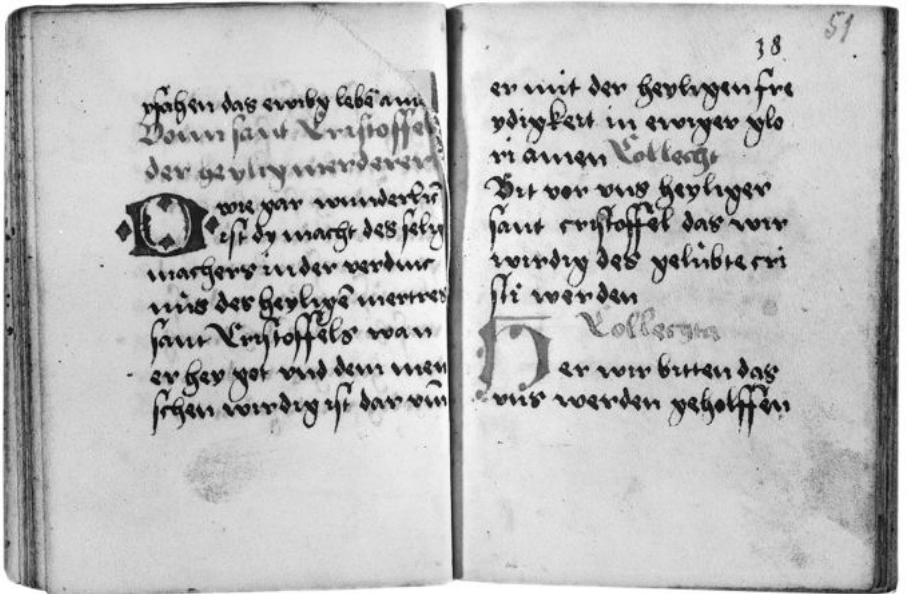 pfahen das ewibg lebē ame
Vonn sant Cristoffel
der heylig merderer
O wie gar wunderlich
ist dy macht des selig
machers in der verdinc
nüs des heyligē mertres
sant Cristoffels wan
er hey got vnd dem men
schen wirdig ist dar vm
51
38
er mit der heyligen fre
ydigkeit in ewiger glo
ri amen Collecht
Bit vor vns heyliger
sant cristoffel das wir
wirdig des gelübte cri
sti werden
Collechta
Her wir bitten das
vns werden geholffen